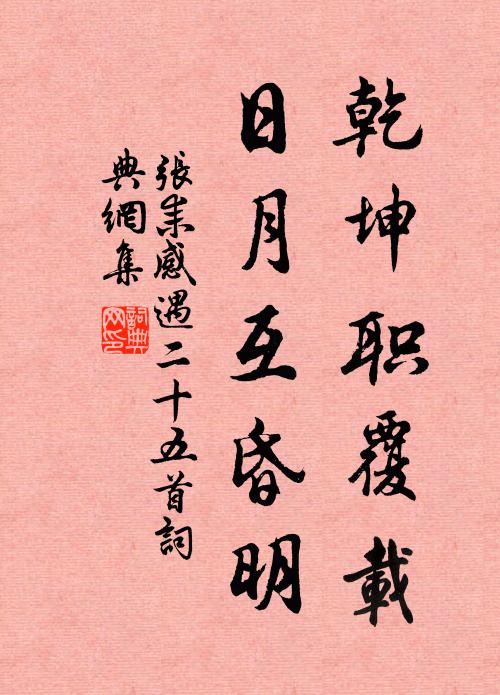 乾坤职覆載
日月互昏明
張耒感遇二十五首詞
典網集
詞典网印